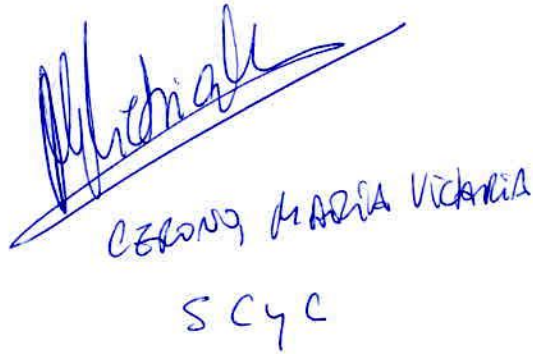 CERONO, MARIA VICTORIA
S C y C